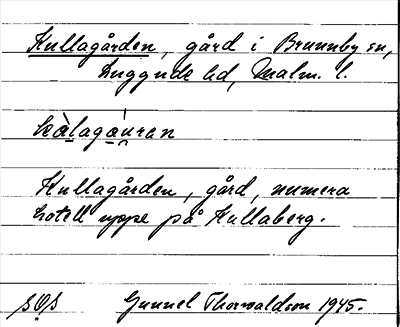 Kullagården, gård i Brunnby sn,
Luggude hd, Malm. l.
Kullagården, gård, numera
hotell uppe på Kullaberg.
Gunnel Thorvaldson 1945.